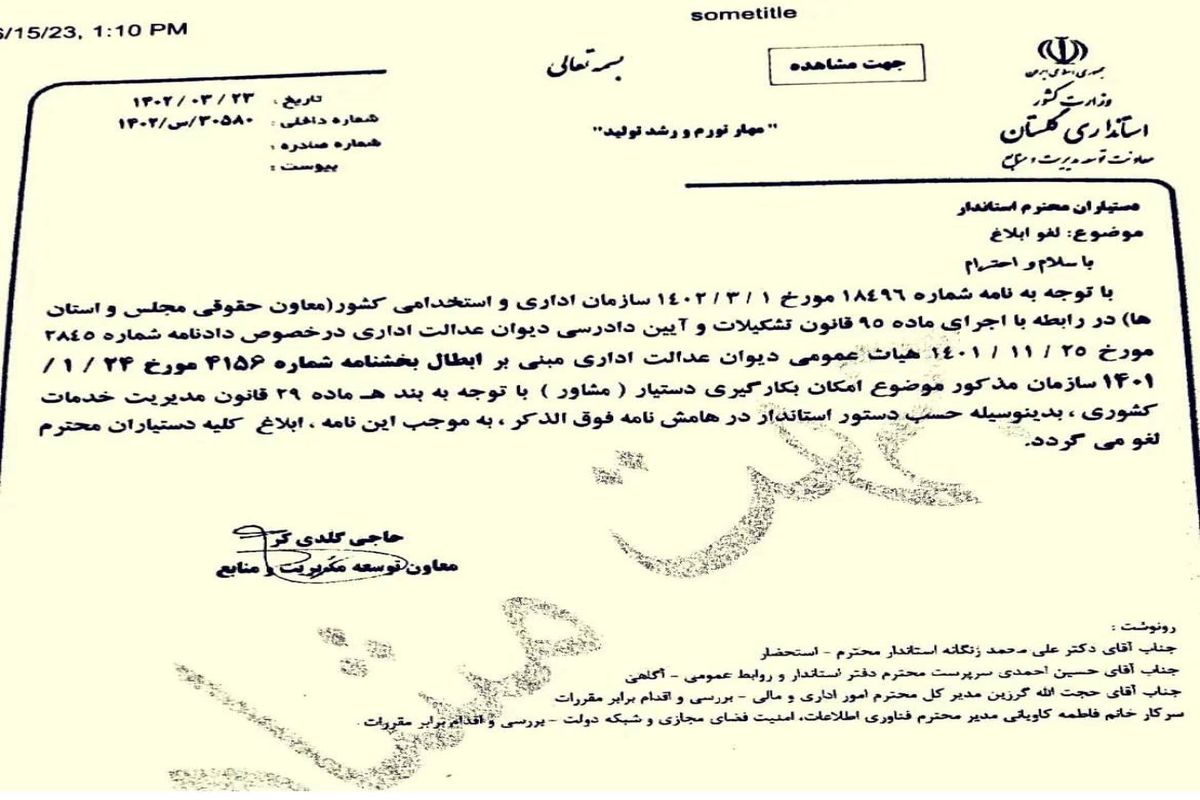 6/15/23, 1:10 PM
sometitle
جمهوری اسلامی ایران
وزارت کشور
استانداری گلستان
معاونت توسعه مدیریت و منابع
جهت مشاهده
بسمه تعالی
"مهار تورم و رشد تولید"
تاریخ : ۱۴۰۲/۰۳/۲۳
شماره داخلی : ۱۴۰۲/س/۳۰۵۸۰
شماره صادره :
پیوست :
دستیاران محترم استاندار
موضوع: لغو ابلاغ
با سلام و احترام
با توجه به نامه شماره ۱۸۴۹۶ مورخ ۱ / ۳ / ۱۴۰۲ سازمان اداری و استخدامی کشور(معاون حقوقی مجلس و استان
ها) در رابطه با اجرای ماده ۹۵ قانون تشکیلات و آیین دادرسی دیوان عدالت اداری درخصوص دادنامه شماره ۲۸۴۵
مورخ ۲۵ / ۱۱ / ۱۴۰۱ هیات عمومی دیوان عدالت اداری مبنی بر ابطال بخشنامه شماره ۴۱۵۶ مورخ ۲۴ / ۱ /
۱۴۰۱ سازمان مذکور موضوع امکان بکارگیری دستیار ( مشاور ) با توجه به بند هـ ماده ۲۹ قانون مدیریت خدمات
کشوری ، بدینوسیله حسب دستور استاندار در هامش نامه فوق الذکر ، به موجب این نامه ، ابلاغ کلیه دستیاران محترم
لغو می گردد.
حاجی گلدی کر
معاون توسعه مدیریت و منابع
رونوشت :
جناب آقای دکتر علی محمد زنگانه استاندار محترم - استحضار
جناب آقای حسین احمدی سرپرست محترم دفتر استاندار و روابط عمومی - آگاهی
جناب آقای حجت الله گرزین مدیر کل محترم امور اداری و مالی - بررسی و اقدام برابر مقررات
سرکار خانم فاطمه کاویانی مدیر محترم فناوری اطلاعات، امنیت فضای مجازی و شبکه دولت - بررسی و اقدام برابر مقررات